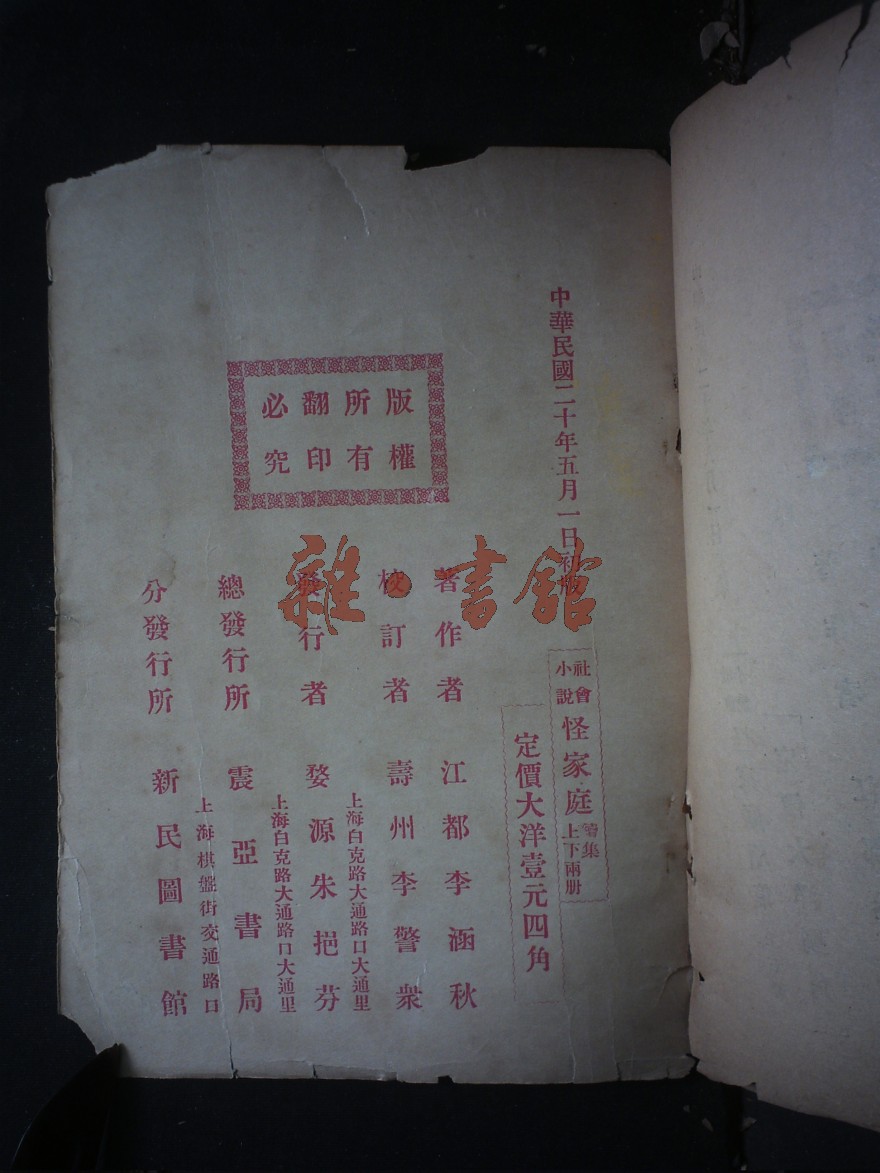 中華民國二十年五月一日初版
社會小說
怪家庭
續集
上下兩册
定價大洋壹元四角
版權所有
翻印必究
著作者 江都李涵秋
校訂者 壽州李警衆
上海白克路大通路口大通里
發行者 婺源朱挹芬
上海白克路大通路口大通里
總發行所 震亞書局
上海棋盤街交通路口
分發行所 新民圖書館
雜·書館